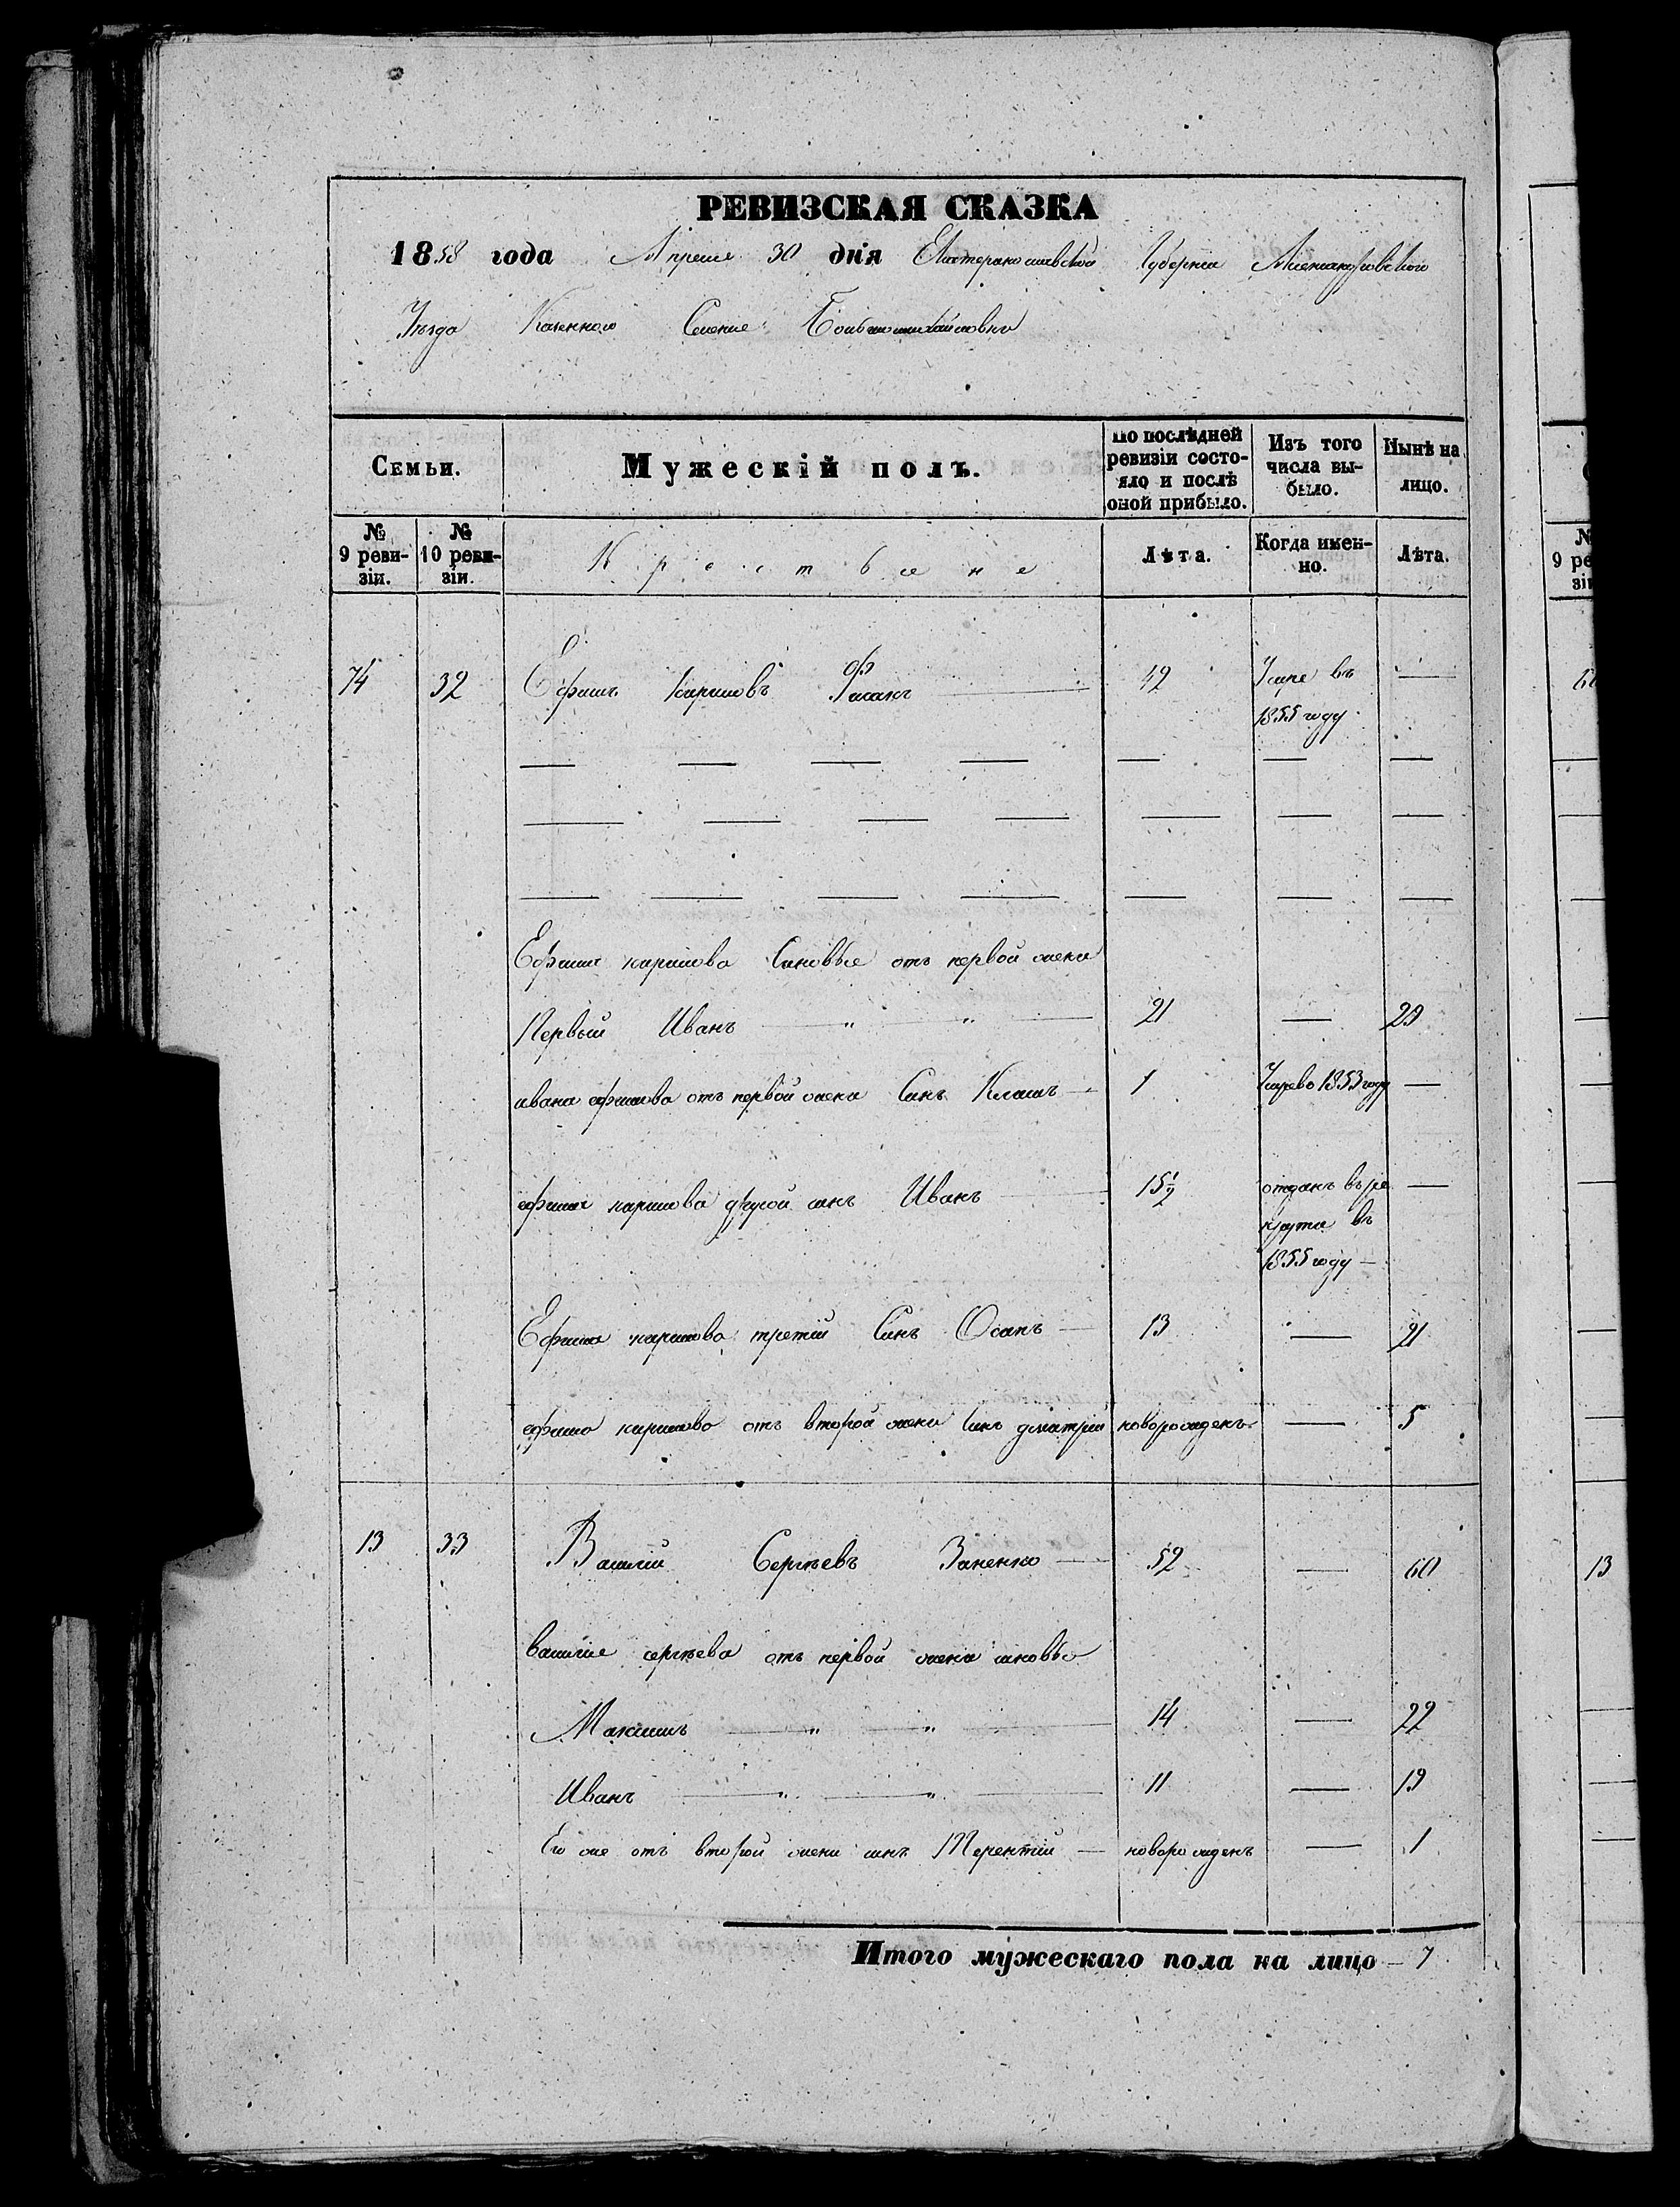 РЕВИЗСКАЯ СКАЗКА
1858 года Апреля 30 дня Екатеринославской Губернии Александровского
Уезда Казенного Селения Большемихайловки
Семьи. Мужескій полъ. По послѣдней ревизіи состояло и послѣ оной прибыло. Изъ того числа выбыло. Нынѣ на лицо.
№ 9 ревизіи. № 10 ревизіи. Крестьяне Лѣта. Когда именно. Лѣта.
74 32 Ефимъ Кириловъ 42 Умре въ
1855 году
Ефима кирилова Синовье от первой жени
Первый Иванъ " " 21 29
ивана ефимова отъ первой жени Синъ Климъ 1 Умре въ 1853 году
ефима кирилова другой синъ Иванъ 15 1/2 отданъ въ ре
крути въ
1855 году
Ефима кирилова третий Синъ Осипъ 13 21
ефима кирилова отъ второй жени синъ дмитрий новорожденъ 5
13 33 Василий Сергѣевъ Заненко 52 60
василие сергѣева отъ первой жени синовье
Максимъ " " 14 22
Иванъ " " 11 19
Его же отъ второй жени синъ Терентий новорожденъ 1
Итого мужескаго пола на лицо 7
№
9 ре
зі
13